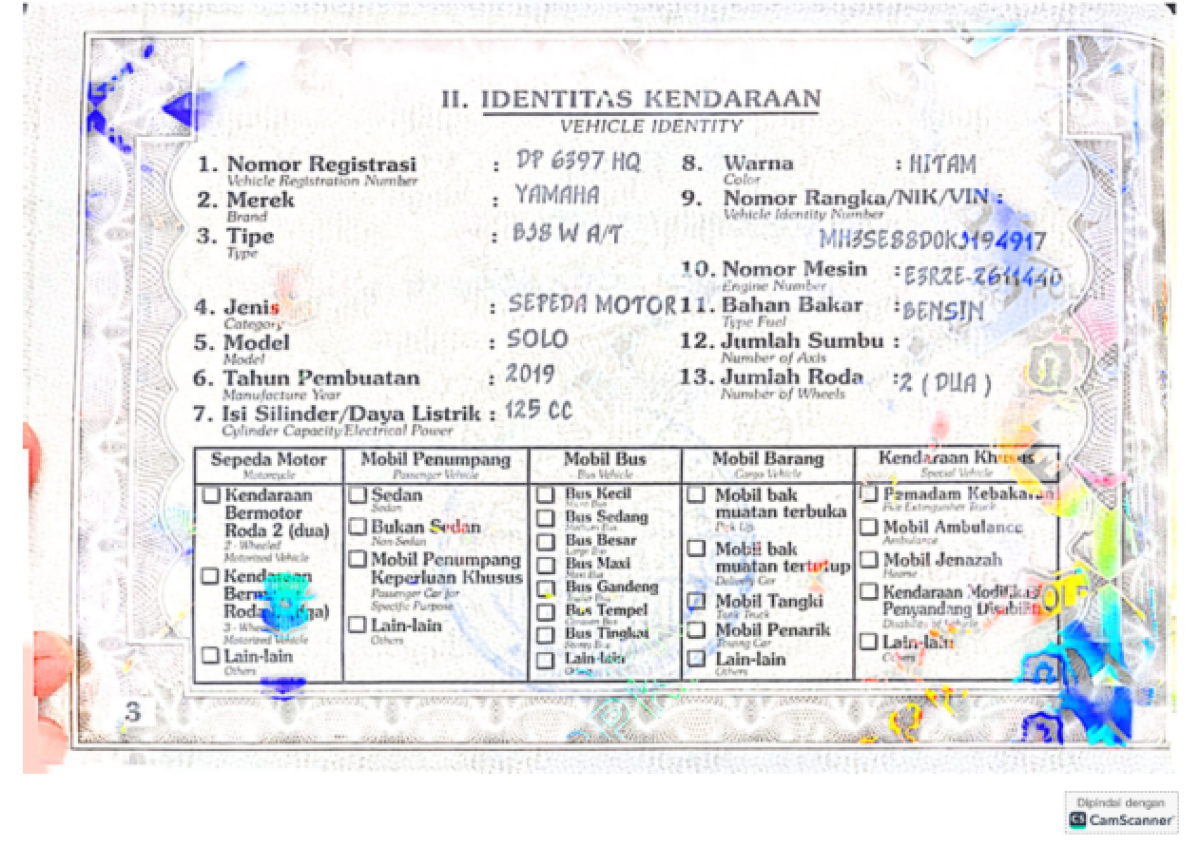 II. IDENTITAS KENDARAAN
VEHICLE IDENTITY
1. Nomor Registrasi : DP 6397 HQ
Vehicle Registration Number
2. Merek : YAMAHA
Brand
3. Tipe : BJ8 W A/T
Type
4. Jenis : SEPEDA MOTOR
Category
5. Model : SOLO
Model
6. Tahun Pembuatan : 2019
Manufacture Year
7. Isi Silinder/Daya Listrik : 125 CC
Cylinder Capacity/Electrical Power
8. Warna : HITAM
Color
9. Nomor Rangka/NIK/VIN :
Vehicle Identity Number
MH3SE88D0KJ194917
10. Nomor Mesin : E3R2E-2611440
Engine Number
11. Bahan Bakar : BENSIN
Type Fuel
12. Jumlah Sumbu :
Number of Axis
13. Jumlah Roda : 2 ( DUA )
Number of Wheels
Sepeda Motor
Motorcycle
Kendaraan
Bermotor
Roda 2 (dua)
2 - Wheeled
Motorized Vehicle
Kendaraan
Roda
3 -
Motorized Vehicle
Lain-lain
Others
Mobil Penumpang
Passenger Vehicle
Sedan
Sedan
Bukan Sedan
Non Sedan
Mobil Penumpang
Keperluan Khusus
Passenger Car for
Specific Purpose
Lain-lain
Others
Mobil Bus
Bus Vehicle
Bus Kecil
Bus Sedang
Medium Bus
Bus Besar
Large Bus
Bus Maxi
Maxi Bus
Bus Gandeng
Bus Tempel
Bus Tingkat
Lain-lain
Mobil Barang
Cargo Vehicle
Mobil bak
muatan terbuka
Pick Up
Mobil bak
muatan tertutup
Delivery Car
Mobil Tangki
Tank Truck
Mobil Penarik
Towing Car
Lain-lain
Others
Kendaraan Khusus
Special Vehicle
Pemadam Kebakaran
Fire Extinguisher Truck
Mobil Ambulance
Ambulance
Mobil Jenazah
Hearse
Kendaraan Modifikasi
Penyandang Disabilitas
Disability of Vehicle
Lain-lain
Others
3
Dipindai dengan
CS CamScanner